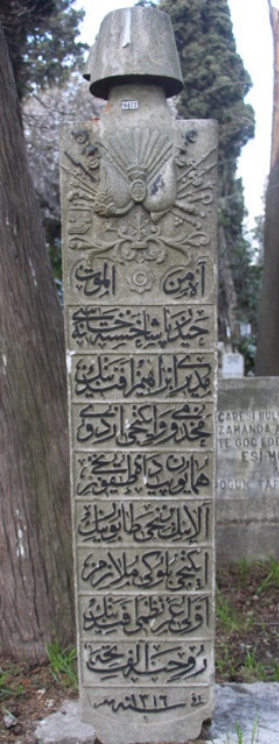 آه من الموت
حيدر پاشا خسته خانه سی
مديری ابراهيم افندينك
مخدومی و ايكنجی اردوی
همايون پياده طقوزنجی
آلاينك نجی طابورينك
ايكنجی بلوكی ملازم
اولی عمر نظمی افندينك
روحيچون الفاتحه
سنه ١٣١٦
CARE-İ BUL
ZAMANDA A
TE GÖÇ EDİ
ESİ M